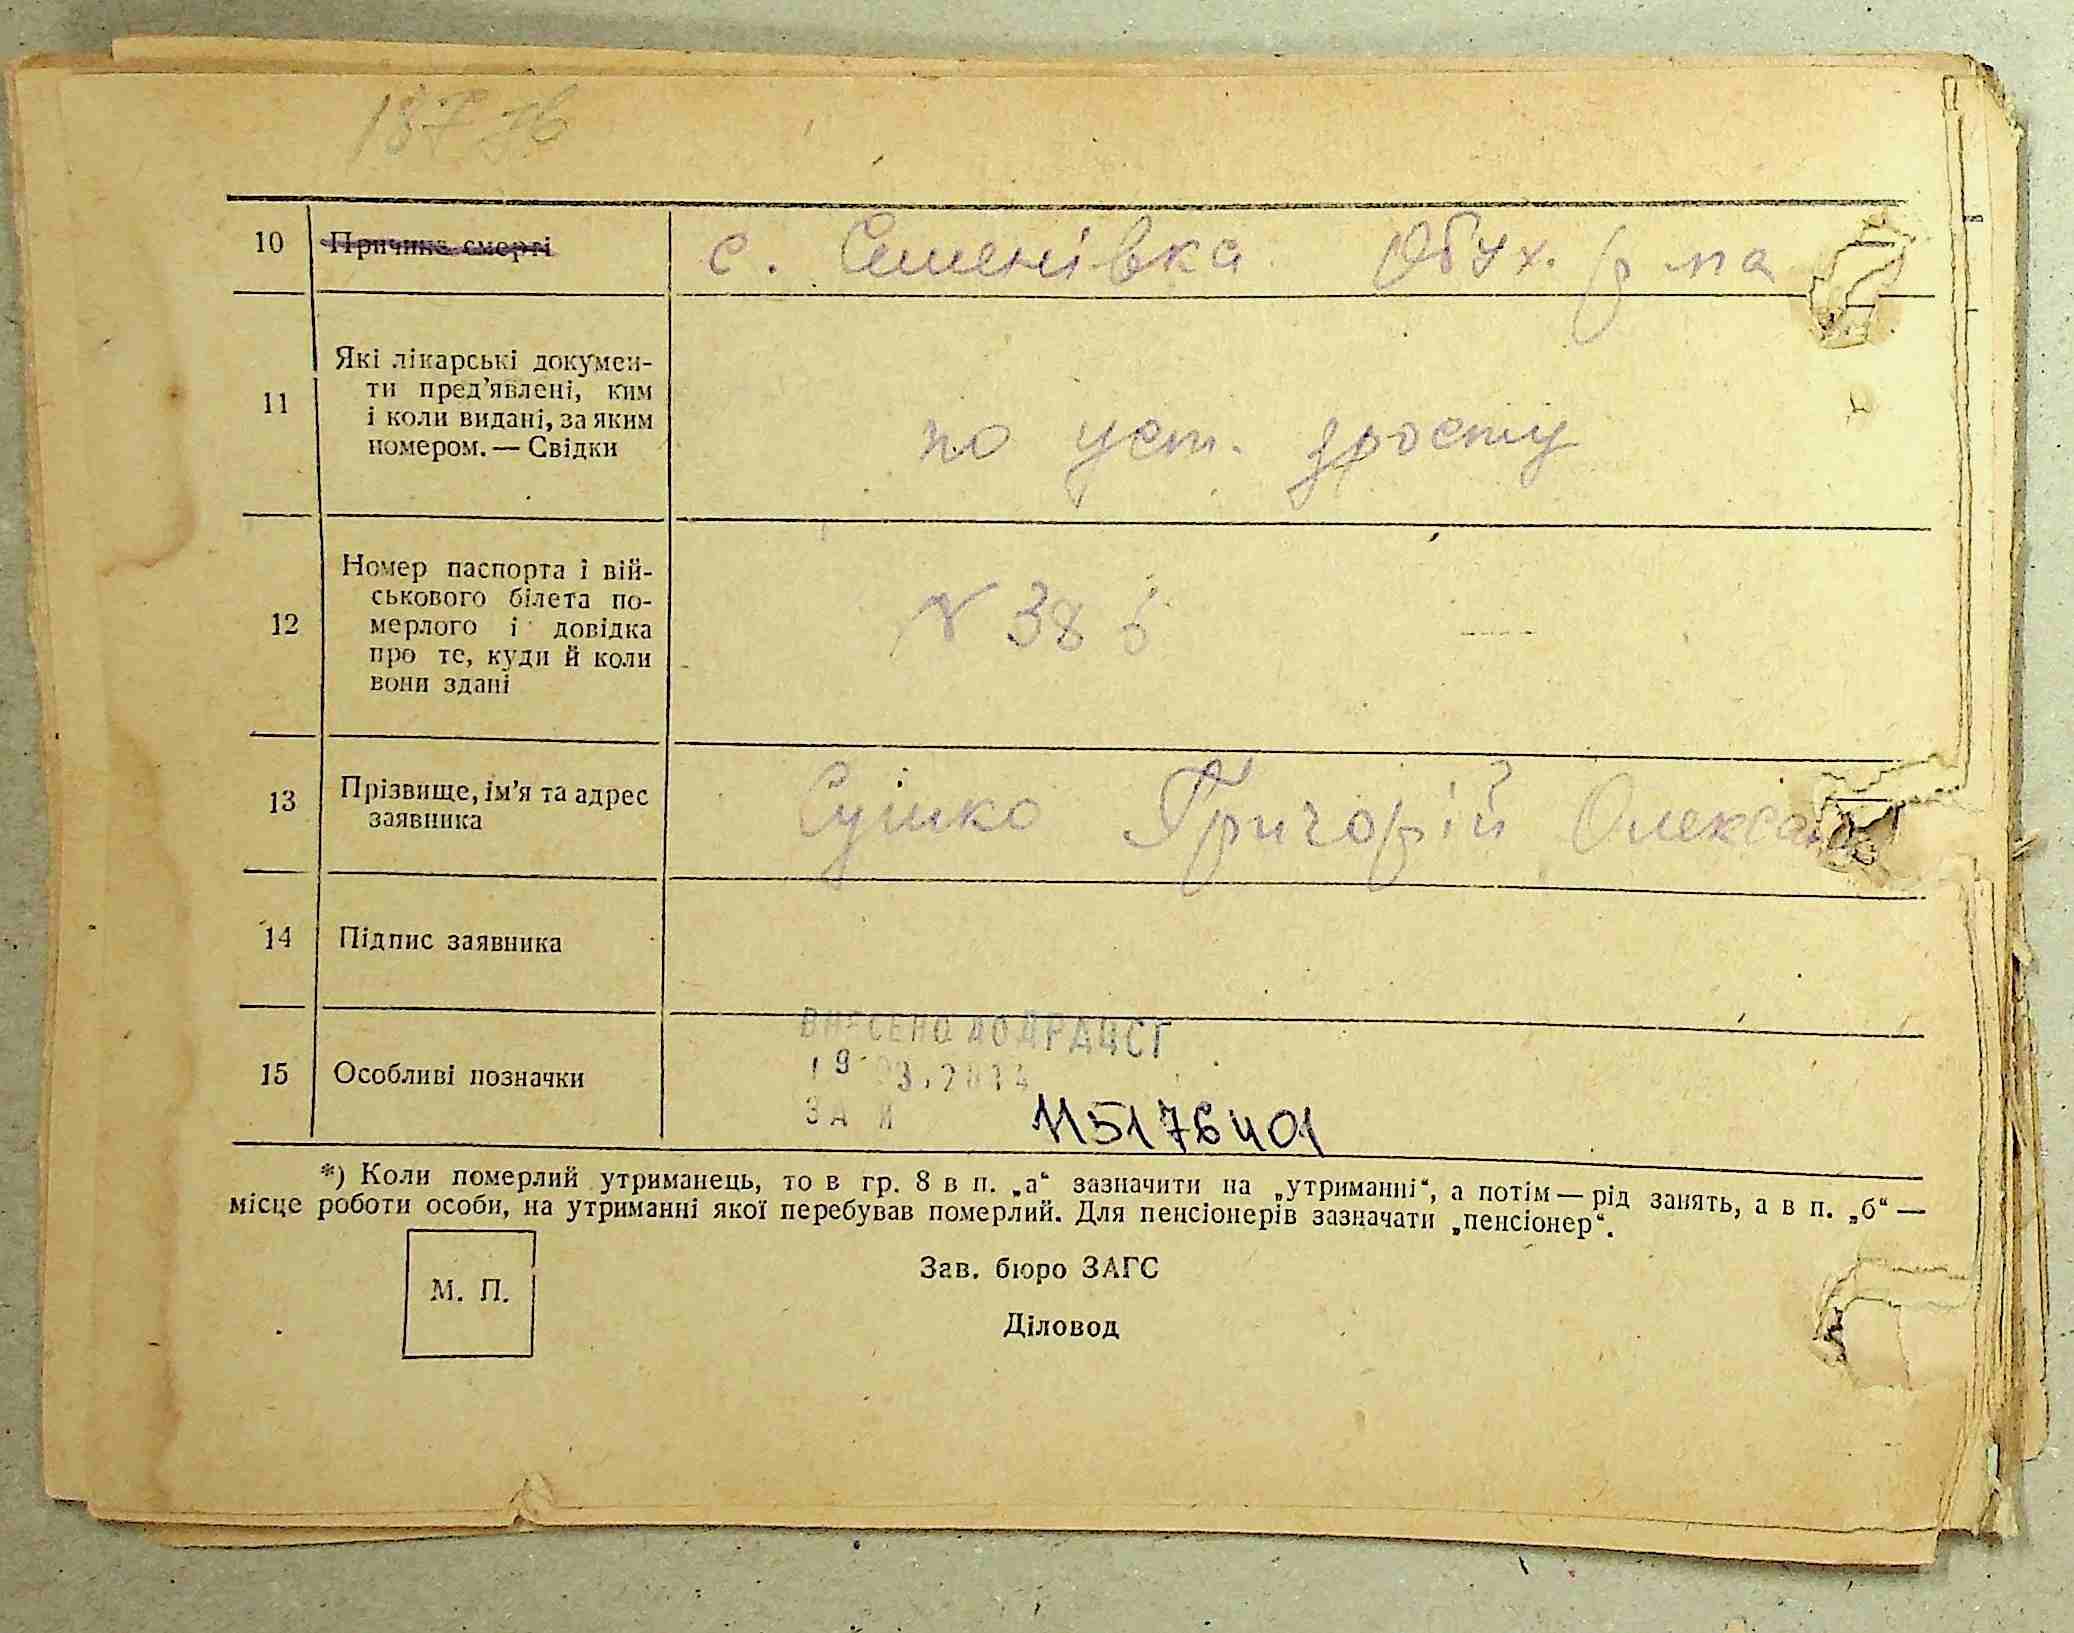 10 Причина смерті с. Семенівка Обух. р-на
11 Які лікарські докумен-
ти пред’явлені, ким
і коли видані, за яким
номером. — Свідки
по уст. зросту
12 Номер паспорта і вій-
ськового білета по-
мерлого і довідка
про те, куди й коли
вони здані
№ 38
13 Прізвище, ім’я та адрес
заявника
Сушко Григорій Олекса
14 Підпис заявника
15 Особливі позначки
ВНЕСЕНО ДО ДРАЦСГ
ЗА №
115176401
*) Коли померлий утриманець, то в гр. 8 в п. „а“ зазначити на „утриманні“, а потім — рід занять, а в п. „б“ —
місце роботи особи, на утриманні якої перебував померлий. Для пенсіонерів зазначати „пенсіонер“.
М. П.
Зав. бюро ЗАГС
Діловод